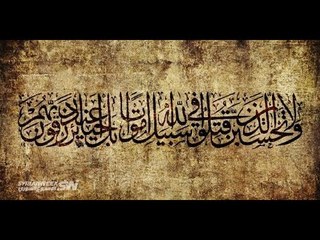 ولا تحسبن الذين قتلوا في سبيل الله أمواتا بل أحياء عند ربهم يرزقون
SYRIANWEEK